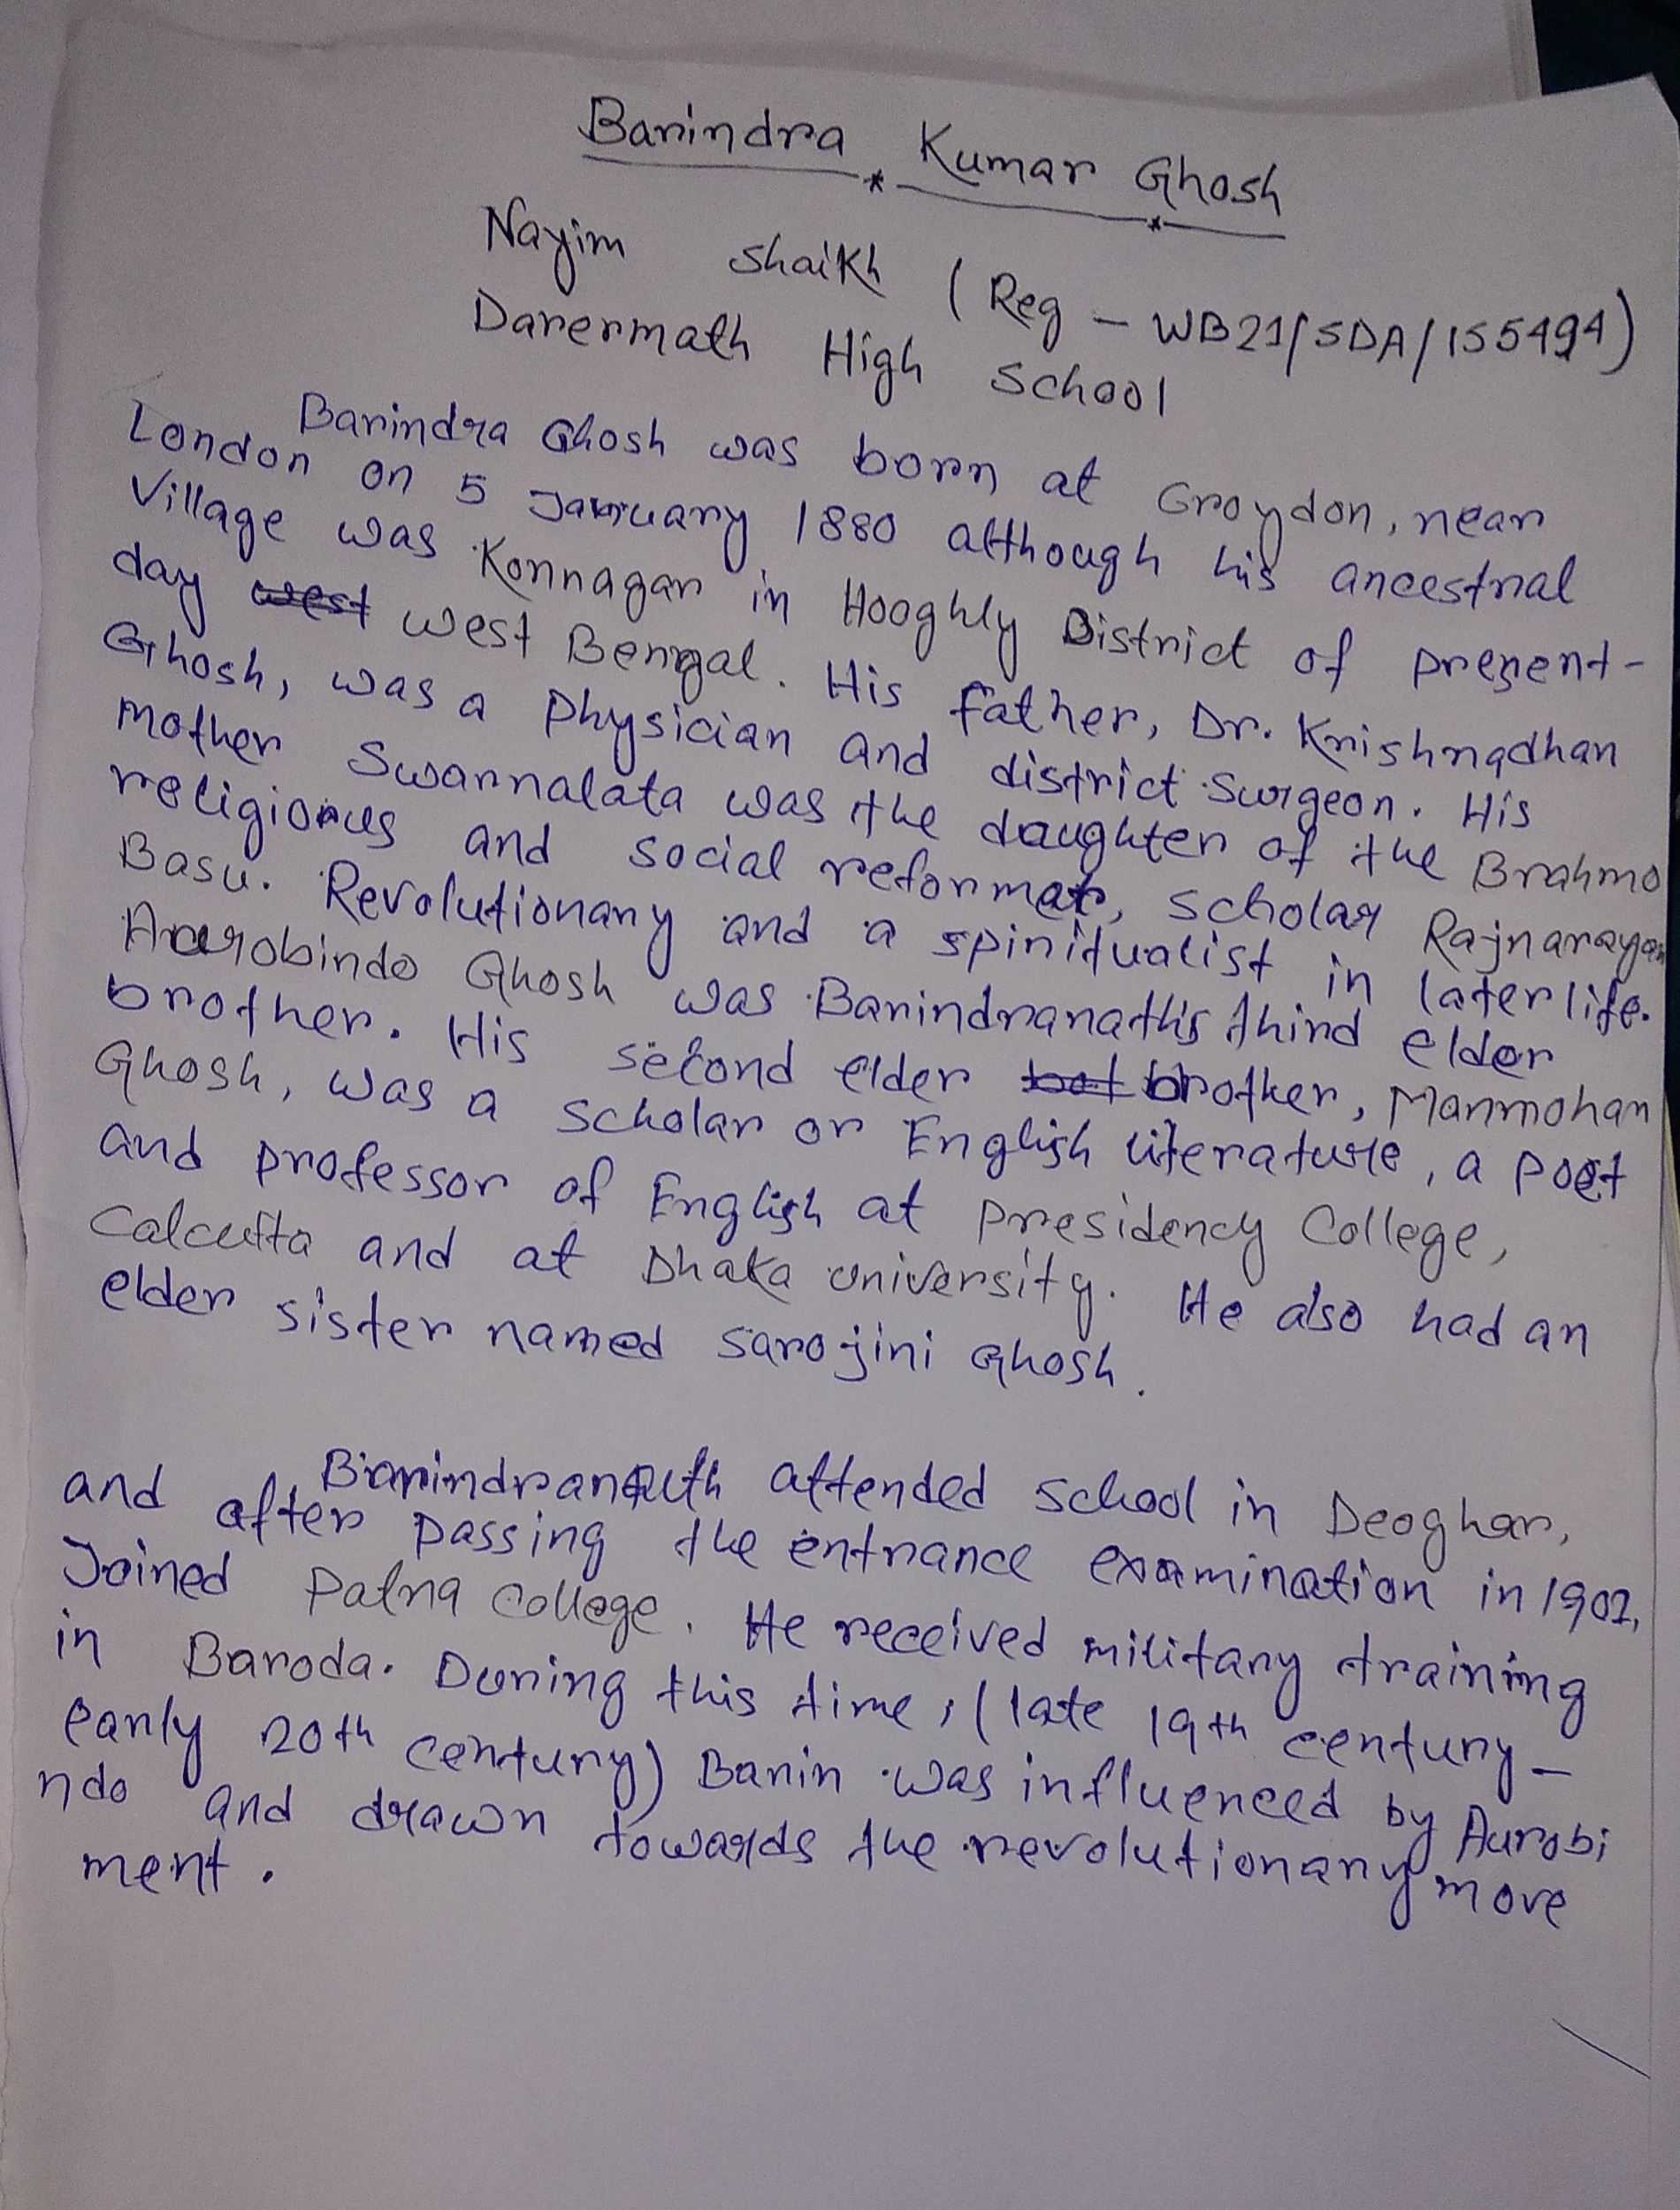 Barindra Kumar Ghosh
Nayim Shaikh (Reg - WB21/SDA/155494)
Darermath High School
Barindra Ghosh was born at Croydon, near
London on 5 January 1880 although his ancestral
Village was Konnagar in Hooghly District of present-
day west West Bengal. His father, Dr. Krishnadhan
Ghosh, was a physician and district surgeon. His
mother Swarnalata was the daughter of the Brahmo
religious and social reformer, scholar Rajnarayan
Basu. Revolutionary and a spiritualist in later life.
Aurobindo Ghosh was Barindranath's third elder
brother. His second elder brother, Manmohan
Ghosh, was a scholar or English literature, a poet
and professor of English at Presidency College,
Calcutta and at Dhaka University. He also had an
elder sister named Sarojini Ghosh.
Barindranath attended school in Deoghar,
and after passing the entrance examination in 1901,
Joined Patna College. He received military training
in Baroda. During this time, (late 19th century -
early 20th century) Barin was influenced by Aurobi
ndo and drawn towards the revolutionary move
ment.